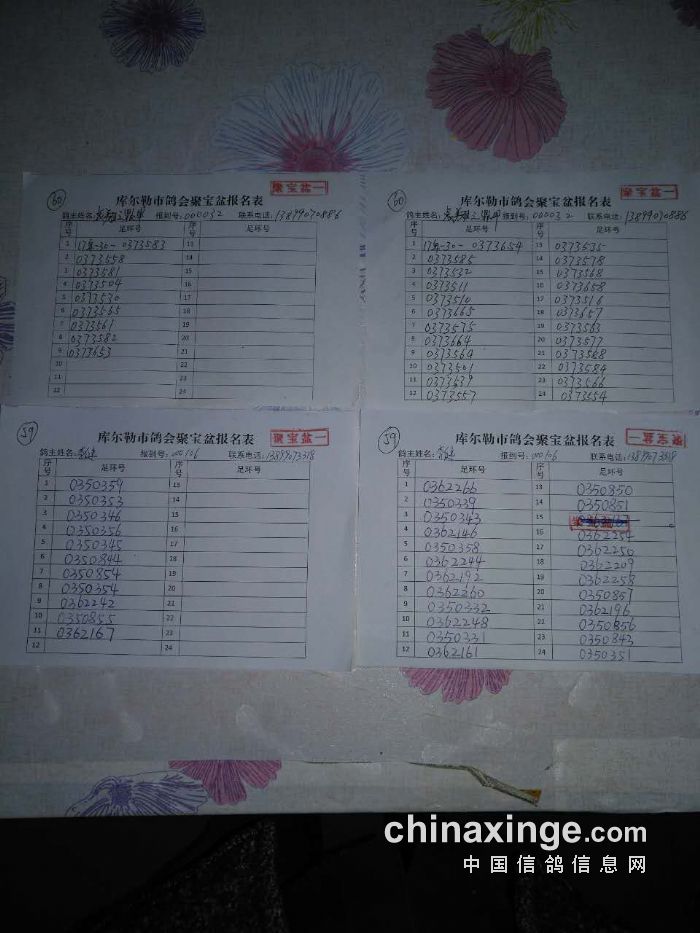 60
聚宝盆一
库尔勒市鸽会聚宝盆报名表
鸽主姓名: 报到号:000032 联系电话:13899070886
序号 足环号 序号 足环号
1 17年-30-0373583 13
2 0373558 14
3 0373581 15
4 0373504 16
5 0373530 17
6 0373565 18
7 0373561 19
8 0373582 20
9 0373653 21
10 22
11 23
12 24
60
聚宝盆一
库尔勒市鸽会聚宝盆报名表
鸽主姓名: 报到号:000032 联系电话:13899070886
序号 足环号 序号 足环号
1 17年-30-0373654 13 0373535
2 0373585 14 0373578
3 0373532 15 0373568
4 0373511 16 0373658
5 0373510 17 0373516
6 0373665 18 0373657
7 0373575 19 0373563
8 0373664 20 0373577
9 0373569 21 0373588
10 0373501 22 0373584
11 0373639 23 0373566
12 0373557 24 0373554
59
聚宝盆一
库尔勒市鸽会聚宝盆报名表
鸽主姓名: 报到号:000106 联系电话:13899073318
序号 足环号 序号 足环号
1 0350359 13
2 0350353 14
3 0350346 15
4 0350356 16
5 0350345 17
6 0350844 18
7 0350854 19
8 0350354 20
9 0362242 21
10 0350855 22
11 0362167 23
12 24
59
聚宝盆一
库尔勒市鸽会聚宝盆报名表
鸽主姓名: 报到号:000106 联系电话:13899073318
序号 足环号 序号 足环号
1 0362266 13 0350850
2 0350339 14 0350851
3 0350343 15
4 0362146 16 0362254
5 0350358 17 0362250
6 0362244 18 0362209
7 0362192 19 0362258
8 0362260 20 0350857
9 0350332 21 0362196
10 0362248 22 0350856
11 0350331 23 0350843
12 0362161 24 0350351
chinaxinge.com
中国信鸽信息网